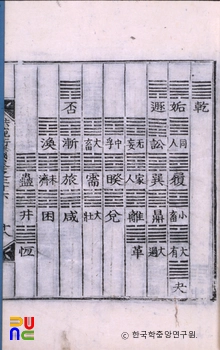 乾
姤 同人 履 小畜 大有 夬
遯 訟 巽 鼎 大過
无妄 家人 離 革
中孚 睽 兌
大畜 需 大壯
否 漸 旅 咸
渙 未濟 困
蠱 井 恒
© 한국학중앙연구원